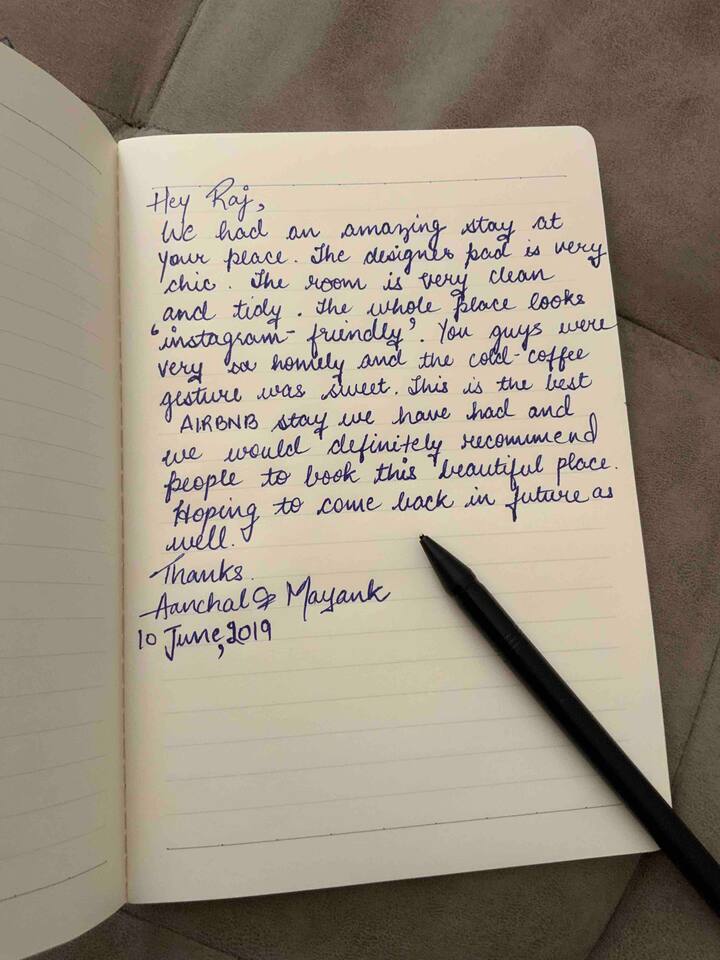 Hey Raj,
We had an amazing stay at
your peace. The designer pad is very
chic. The room is very clean
and tidy. The whole place looks
'instagram-friendly'. You guys were
very so homely and the cold-coffee
gesture was sweet. This is the best
AIRBNB stay we have had and
we would definitely recommend
people to book this beautiful place.
Hoping to come back in future as
well.
Thanks.
Aanchal & Mayank
10 June, 2019